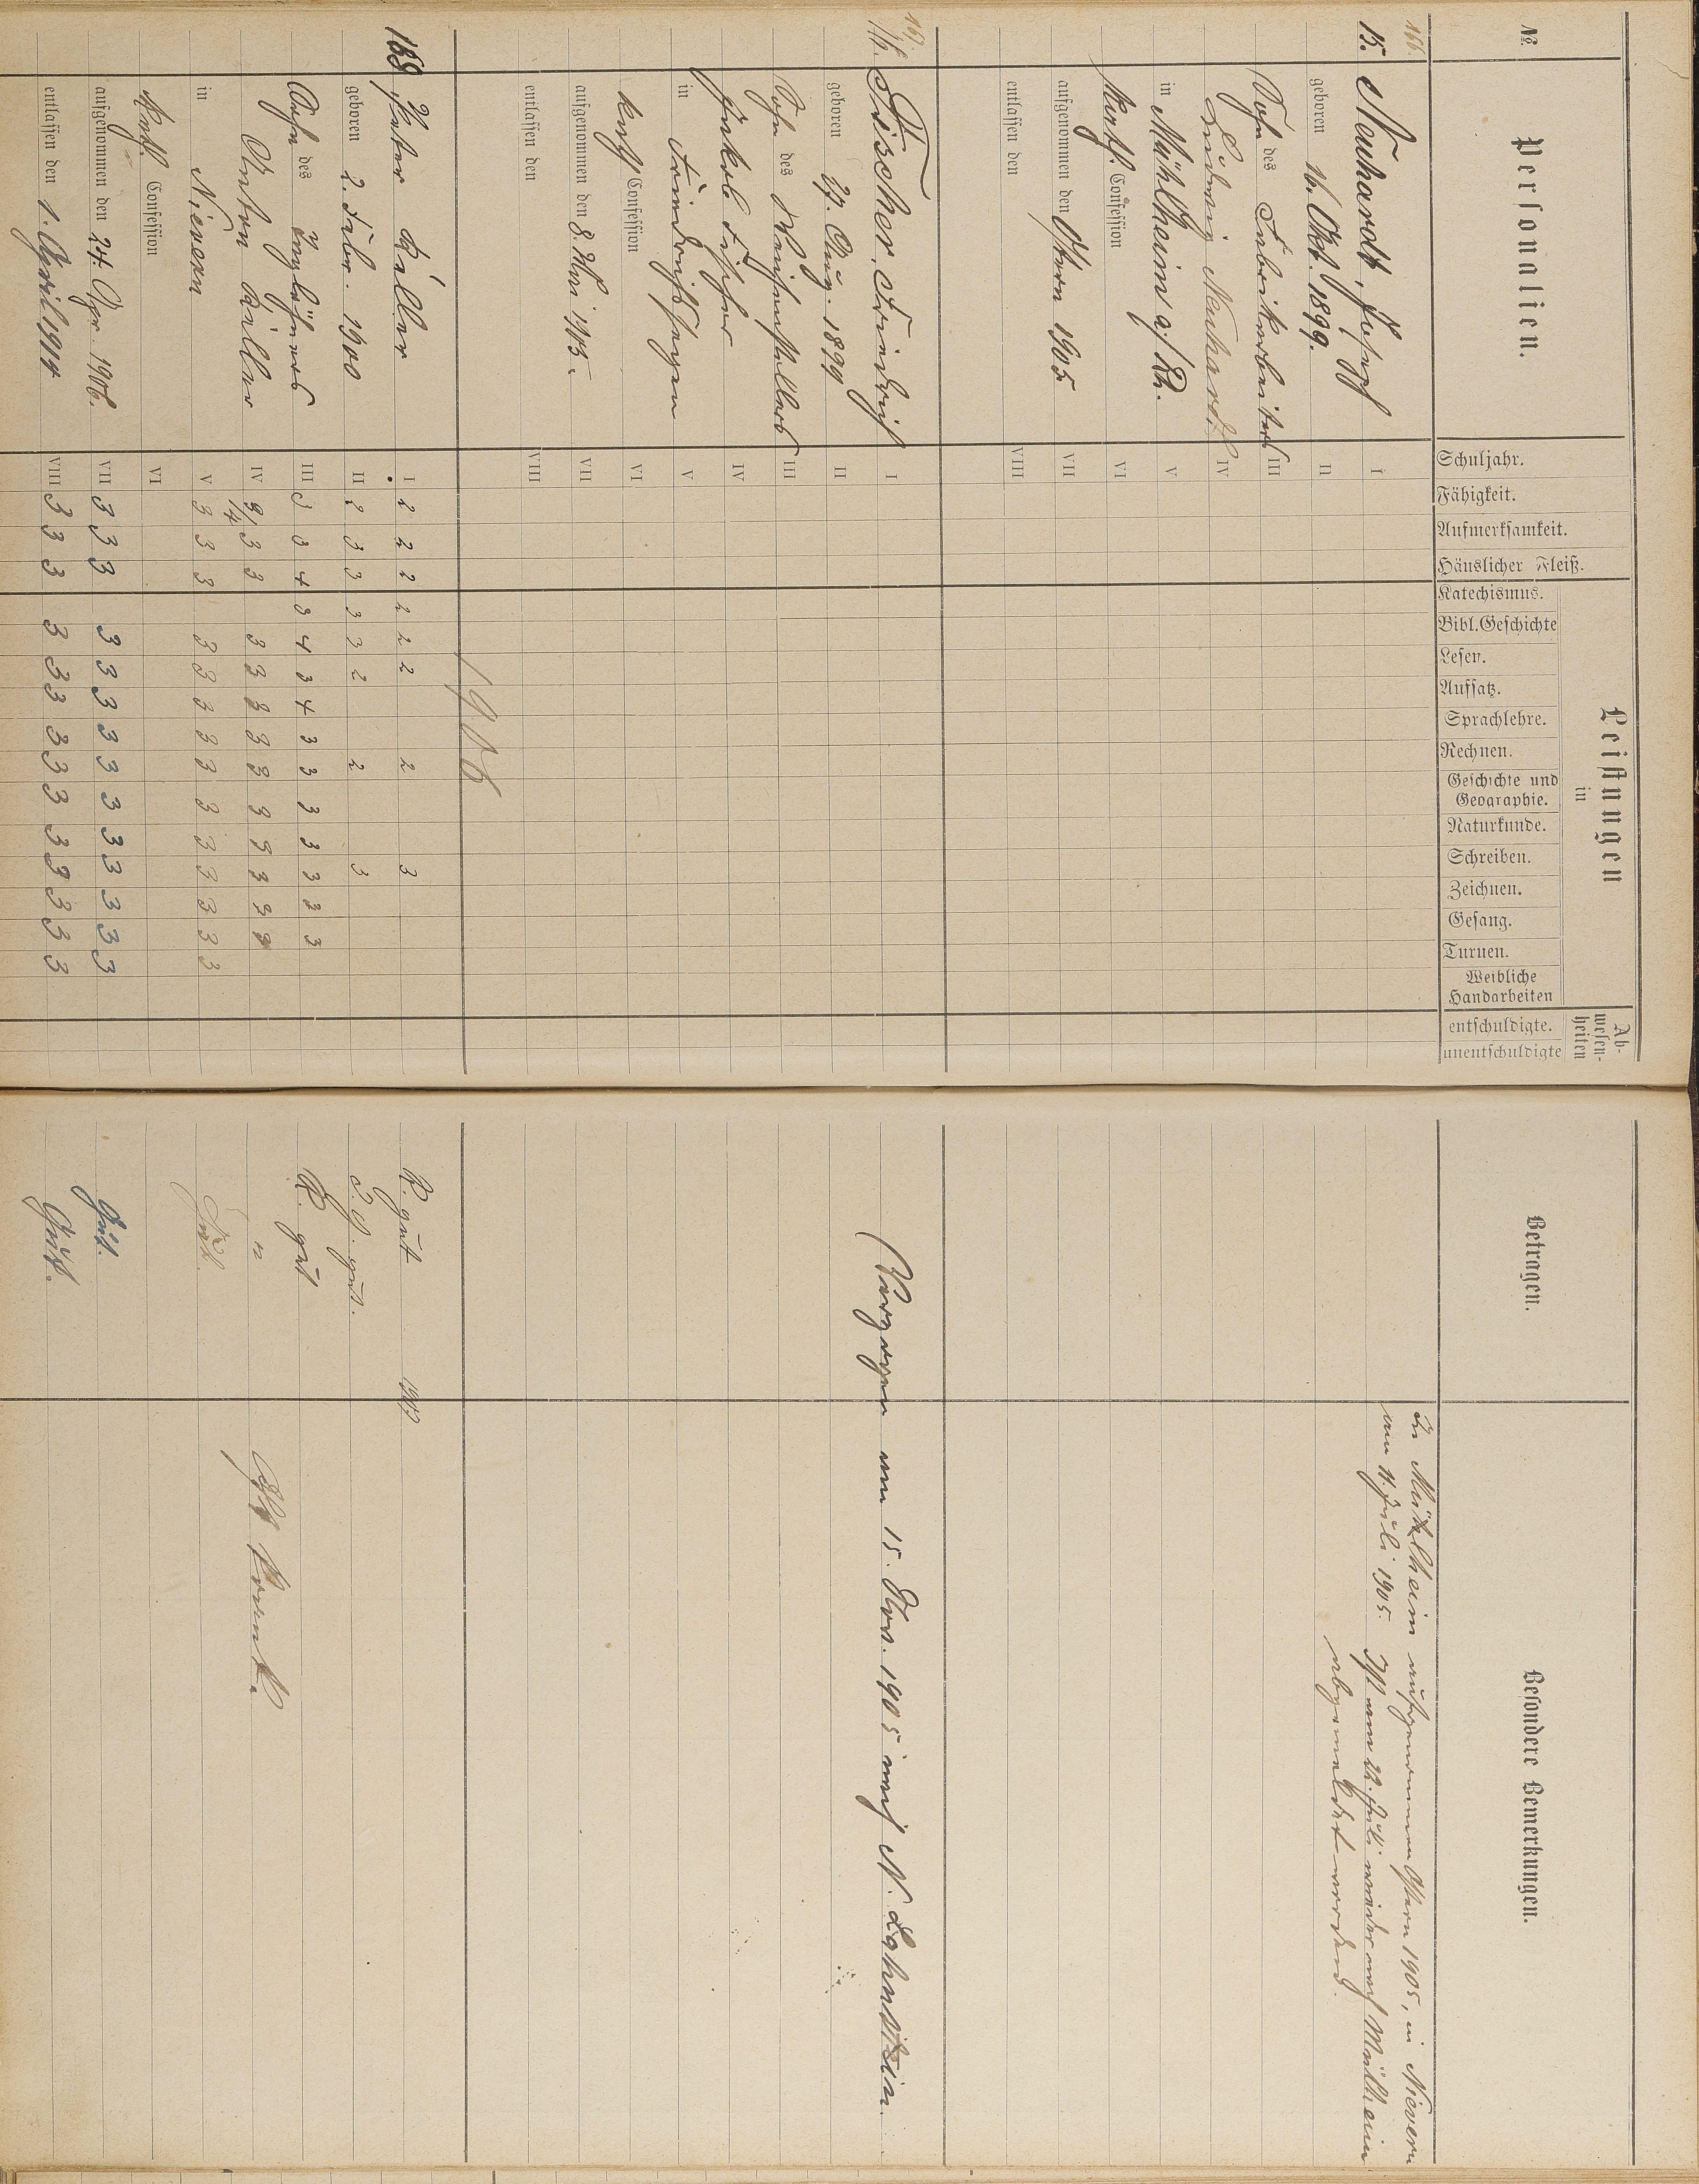 №
Personalien.
Schuljahr.
Fähigkeit.
Aufmerksamkeit.
Häuslicher Fleiß.
Leistungen
in
Katechismus.
Bibl. Geschichte
Lesen.
Aufsatz.
Sprachlehre.
Rechnen.
Geschichte und
Geographie.
Naturkunde.
Schreiben.
Zeichnen.
Gesang.
Turnen.
Weibliche
Handarbeiten
Ab-
wesen-
heiten
entschuldigte.
unentschuldigte
Betragen.
Besondere Bemerkungen.
156.
15. Neuhardt, Joseph I
geboren 16. Okt. 1899. II
Sohn des Fabrikarbeiters III
Ludwig Neuhardt IV
in Mühlheim a/Rh. V
Kath. Confession VI
aufgenommen den Ostern 1905 VII
entlassen den VIII
In Mühlheim aufgenommen Ostern 1905, in Nievern
am 11. Juli 1905. Ist am 22. Juli wieder nach Mülheim
abgemeldet worden.
157.
16. Fischer, Friedrich I
geboren 27. Aug. 1899 II
Sohn des III
Jakob Fischer IV
in Friedrichssegen V
kath Confession VI
aufgenommen den 8. Mai 1905. VII
entlassen den VIII
Verzogen am 15. Nov. 1905 nach N. Lahnstein.
1906
158. Peter Keller I 2 2 2 2 2 2 2 3 R. gut 1907
geboren 2. Febr. 1900 II 2 3 3 3 3 2 2 3 gut.
Sohn des Taglöhners III 3 3 4 3 4 3 4 3 3 3 3 3 3 3 R. gut
Anton Keller IV 3/4 3 3 3 3 3 3 3 3 3 3 3 3 " Oft krank.
in Nievern V 3 3 3 3 3 3 3 3 3 3 3 3 3 3 Gut.
Kath. Confession VI
aufgenommen den 24. Apr. 1906. VII 3 3 3 3 3 3 3 3 3 3 3 3 3 3 Gut.
entlassen den 1. April 1914 VIII 3 3 3 3 3 3 3 3 3 3 3 3 3 3 Gut.